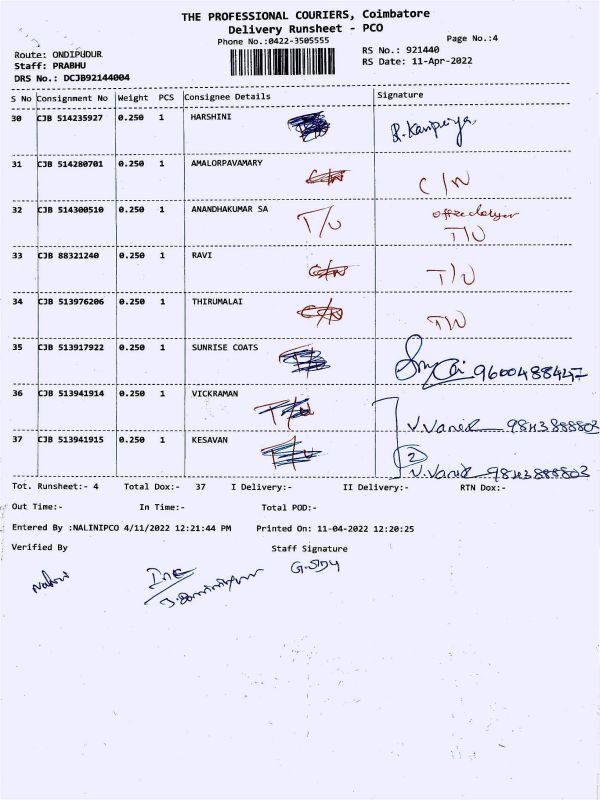 THE PROFESSIONAL COURIERS, Coimbatore
Delivery Runsheet - PCO
Phone No.:0422-3505555
Page No.:4
Route: ONDIPUDUR
RS No.: 921440
Staff: PRABHU
RS Date: 11-Apr-2022
DRS No.: DCJB92144004
S No Consignment No Weight PCS Consignee Details Signature
30 CJB 514235927 0.250 1 HARSHINI
31 CJB 514280701 0.250 1 AMALORPAVAMARY C/N C/N
32 CJB 514300510 0.250 1 ANANDHAKUMAR SA T/U T/U
33 CJB 88321240 0.250 1 RAVI C/N T/U
34 CJB 513976206 0.250 1 THIRUMALAI C/N T/U
35 CJB 513917922 0.250 1 SUNRISE COATS 9600488447
36 CJB 513941914 0.250 1 VICKRAMAN T/U 9843888803
2
37 CJB 513941915 0.250 1 KESAVAN T/U 9843888803
Tot. Runsheet:- 4 Total Dox:- 37 I Delivery:- II Delivery:- RTN Dox:-
Out Time:- In Time:- Total POD:-
Entered By :NALINIPCO 4/11/2022 12:21:44 PM Printed On: 11-04-2022 12:20:25
Verified By Staff Signature